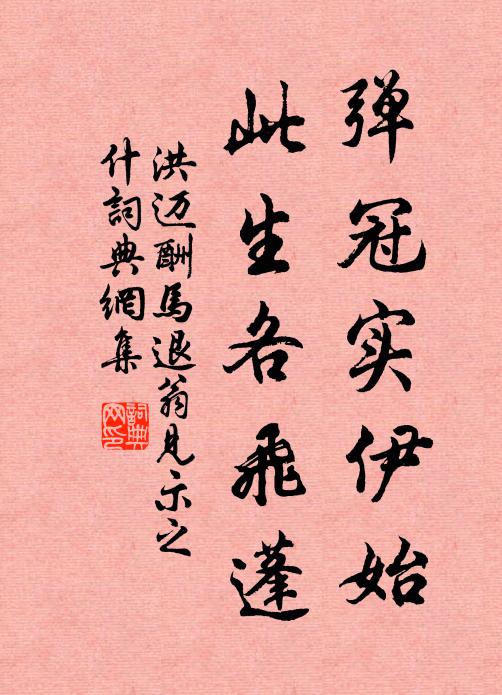 弹冠实伊始
此生各飛蓬
洪迈酬馬退翁見示之
什詞典網集
詞典网印